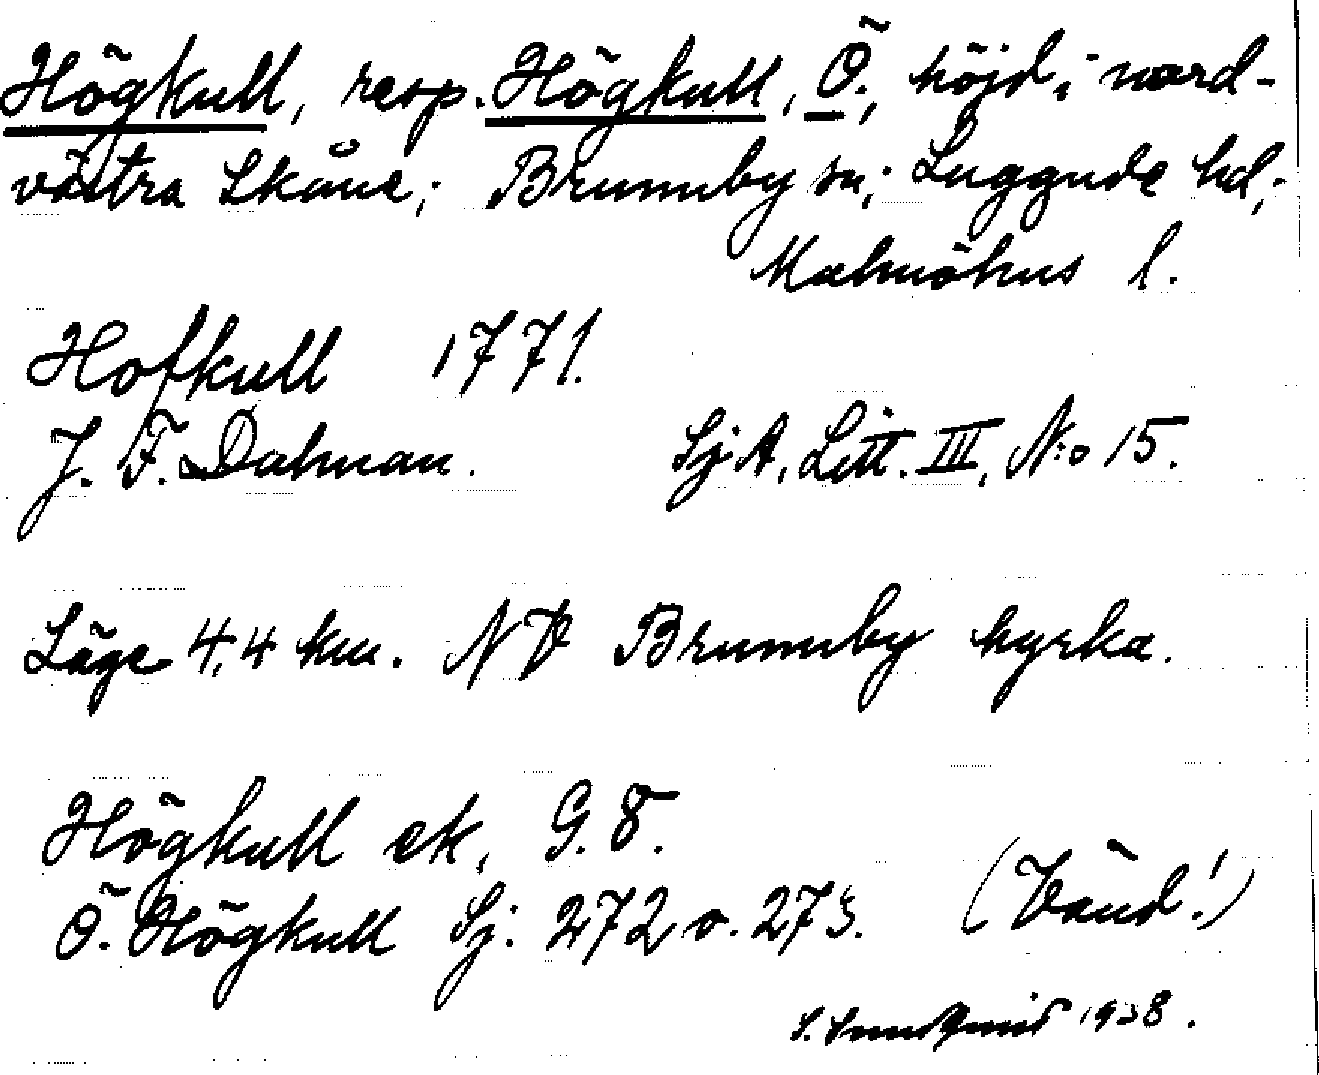 Högkull, resp. Högkull, Ö., höjd i nord-
västra Skåne; Brunnby sn; Luggude hd;
Malmöhus l.
Hofkull 1771.
J. F. Dalman. Sj A, Litt. III, N:o 15.
Läge 4,4 km. NV Brunnby kyrka.
Högkull ek, G. 8.
Ö. Högkull Sj: 272 o. 273. (Vänd!)
1938.